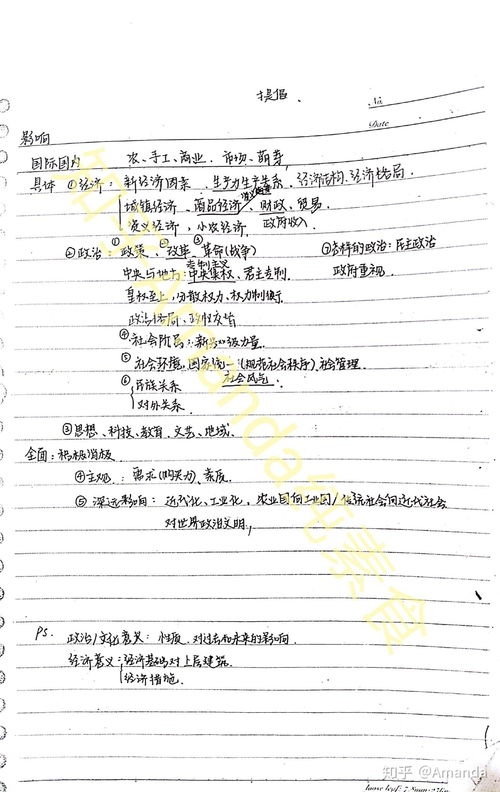 提假、
No.
Date
影响
国际国内 农、手工、商业、市场、萌芽,
具体 ①经济:新经济因素、生产力生产关系、经济结构、经济格局.
城镇经济、商品经济、财政、贸易
小农经济、政府收入
②政治:①政策、②改革、③革命(战争) ⑦怎样的政治:民主政治
专制主义
中央与地方:中央集权、君主专制. 政府重视.
皇权至上,分散权力、权力制衡.
政治格局、政权交替
④社会阶层:新兴阶级力量.
⑤社会环境,国家统一(规范社会秩序)社会管理.
社会风气
⑥民族关系
对外关系.
③思想、科技、教育、文艺、地域.
全面:积极消极
④主观:需求(购买力)、素质.
⑤深远影响:近代化、工业化,农业国向工业国/传统社会向近代社会
对世界政治文明,
PS. 政治/文化意义:性质、对过去和未来的影响.
经济意义:经济基础对上层建筑.
经济措施.
知乎Amanda纯素食
知乎 @Amanda